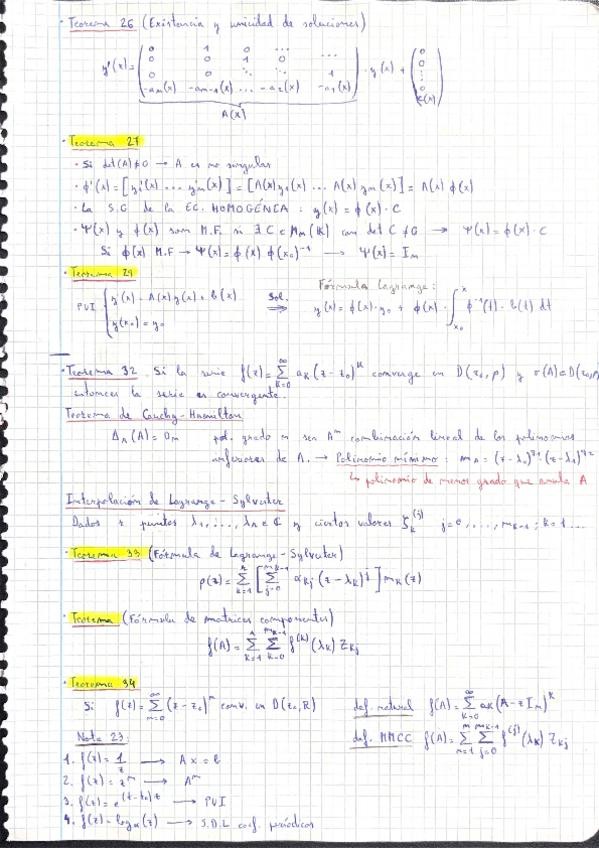 · Teorema 26 (Existencia y unicidad de soluciones)
y'(x) = ( 0 1 0 ... ... ; 0 0 1 0 ... ; 0 0 ⋱ ⋱ 1 ; -aₙ(x) -aₙ₋₁(x) ... -a₂(x) -a₁(x) ) · y(x) + ( 0 ; 0 ; ⋮ ; 0 ; b(x) )
A(x)
· Teorema 27
· Si det(A)≠0 → A es no singular
· ϕ'(x) = [y₁'(x) ... yₙ'(x)] = [A(x)y₁(x) ... A(x)yₙ(x)] = A(x) ϕ(x)
· La S.G de la EC. HOMOGÉNEA : y(x) = ϕ(x) · C
· Ψ(x) y ϕ(x) son M.F si ∃ C ∈ Mₙ(K) con det C ≠ 0 → Ψ(x) = ϕ(x) · C
Si ϕ(x) M.F → Ψ(x) = ϕ(x) ϕ(x₀)⁻¹ → Ψ(x) = Iₙ
· Teorema 29
Fórmula Lagrange:
PVI { y'(x) = A(x) y(x) + b(x) ; y(x₀) = y₀ Sol. ⇒ y(x) = ϕ(x) · y₀ + ϕ(x) · ∫ₓ₀ˣ ϕ⁻¹(t) · b(t) dt
· Teorema 32. Si la serie f(z) = Σ_{k=0}^∞ aₖ(z-z₀)ᵏ converge en D(z₀,ρ) y σ(A)⊂D(z₀,ρ)
entonces la serie es convergente.
Teorema de Cauchy-Hamilton
Δ_A(A) = 0ₙ pol. grado n sea Aⁿ combinación lineal de los polinomios
inferiores de A. → Polinomio mínimo : m_A = (z-λ₁)^{q₁} · (z-λ₂)^{q₂}
↳ polinomio de menor grado que anula A
Interpolación de Lagrange-Sylvester
Dados r puntos λ₁, ..., λₙ ∈ ℂ y ciertos valores ξₖ^{(j)} j=0, ..., mₖ₋₁ ; k=1 ...
· Teorema 33 (Fórmula de Lagrange-Sylvester)
p(z) = Σ_{k=1}^{r} [ Σ_{j=0}^{mₖ-1} αₖⱼ (z-λₖ)ʲ ] mₖ(z)
· Teorema (Fórmula de matrices componentes)
f(A) = Σ_{k=1}^{r} Σ_{k=0}^{mₖ-1} f^{(k)}(λₖ) Zₖⱼ
· Teorema 34
Si f(z) = Σ_{n=0}^∞ (z-z₀)ⁿ conv. en D(z₀,R) def. natural f(A) = Σ_{k=0}^∞ aₖ(A-zIₙ)ᵏ
Nota 23: def. MMCC f(A) = Σ_{n=1}^{m} Σ_{j=0}^{mₖ-1} f^{(j)}(λₖ) Zₖⱼ
1. f(z) = 1/z → Ax = b
2. f(z) = zᵐ → Aᵐ
3. f(z) = e^{(t-t₀)z} → PVI
4. f(z) = log_α(z) → S.D.L coef. periódicos